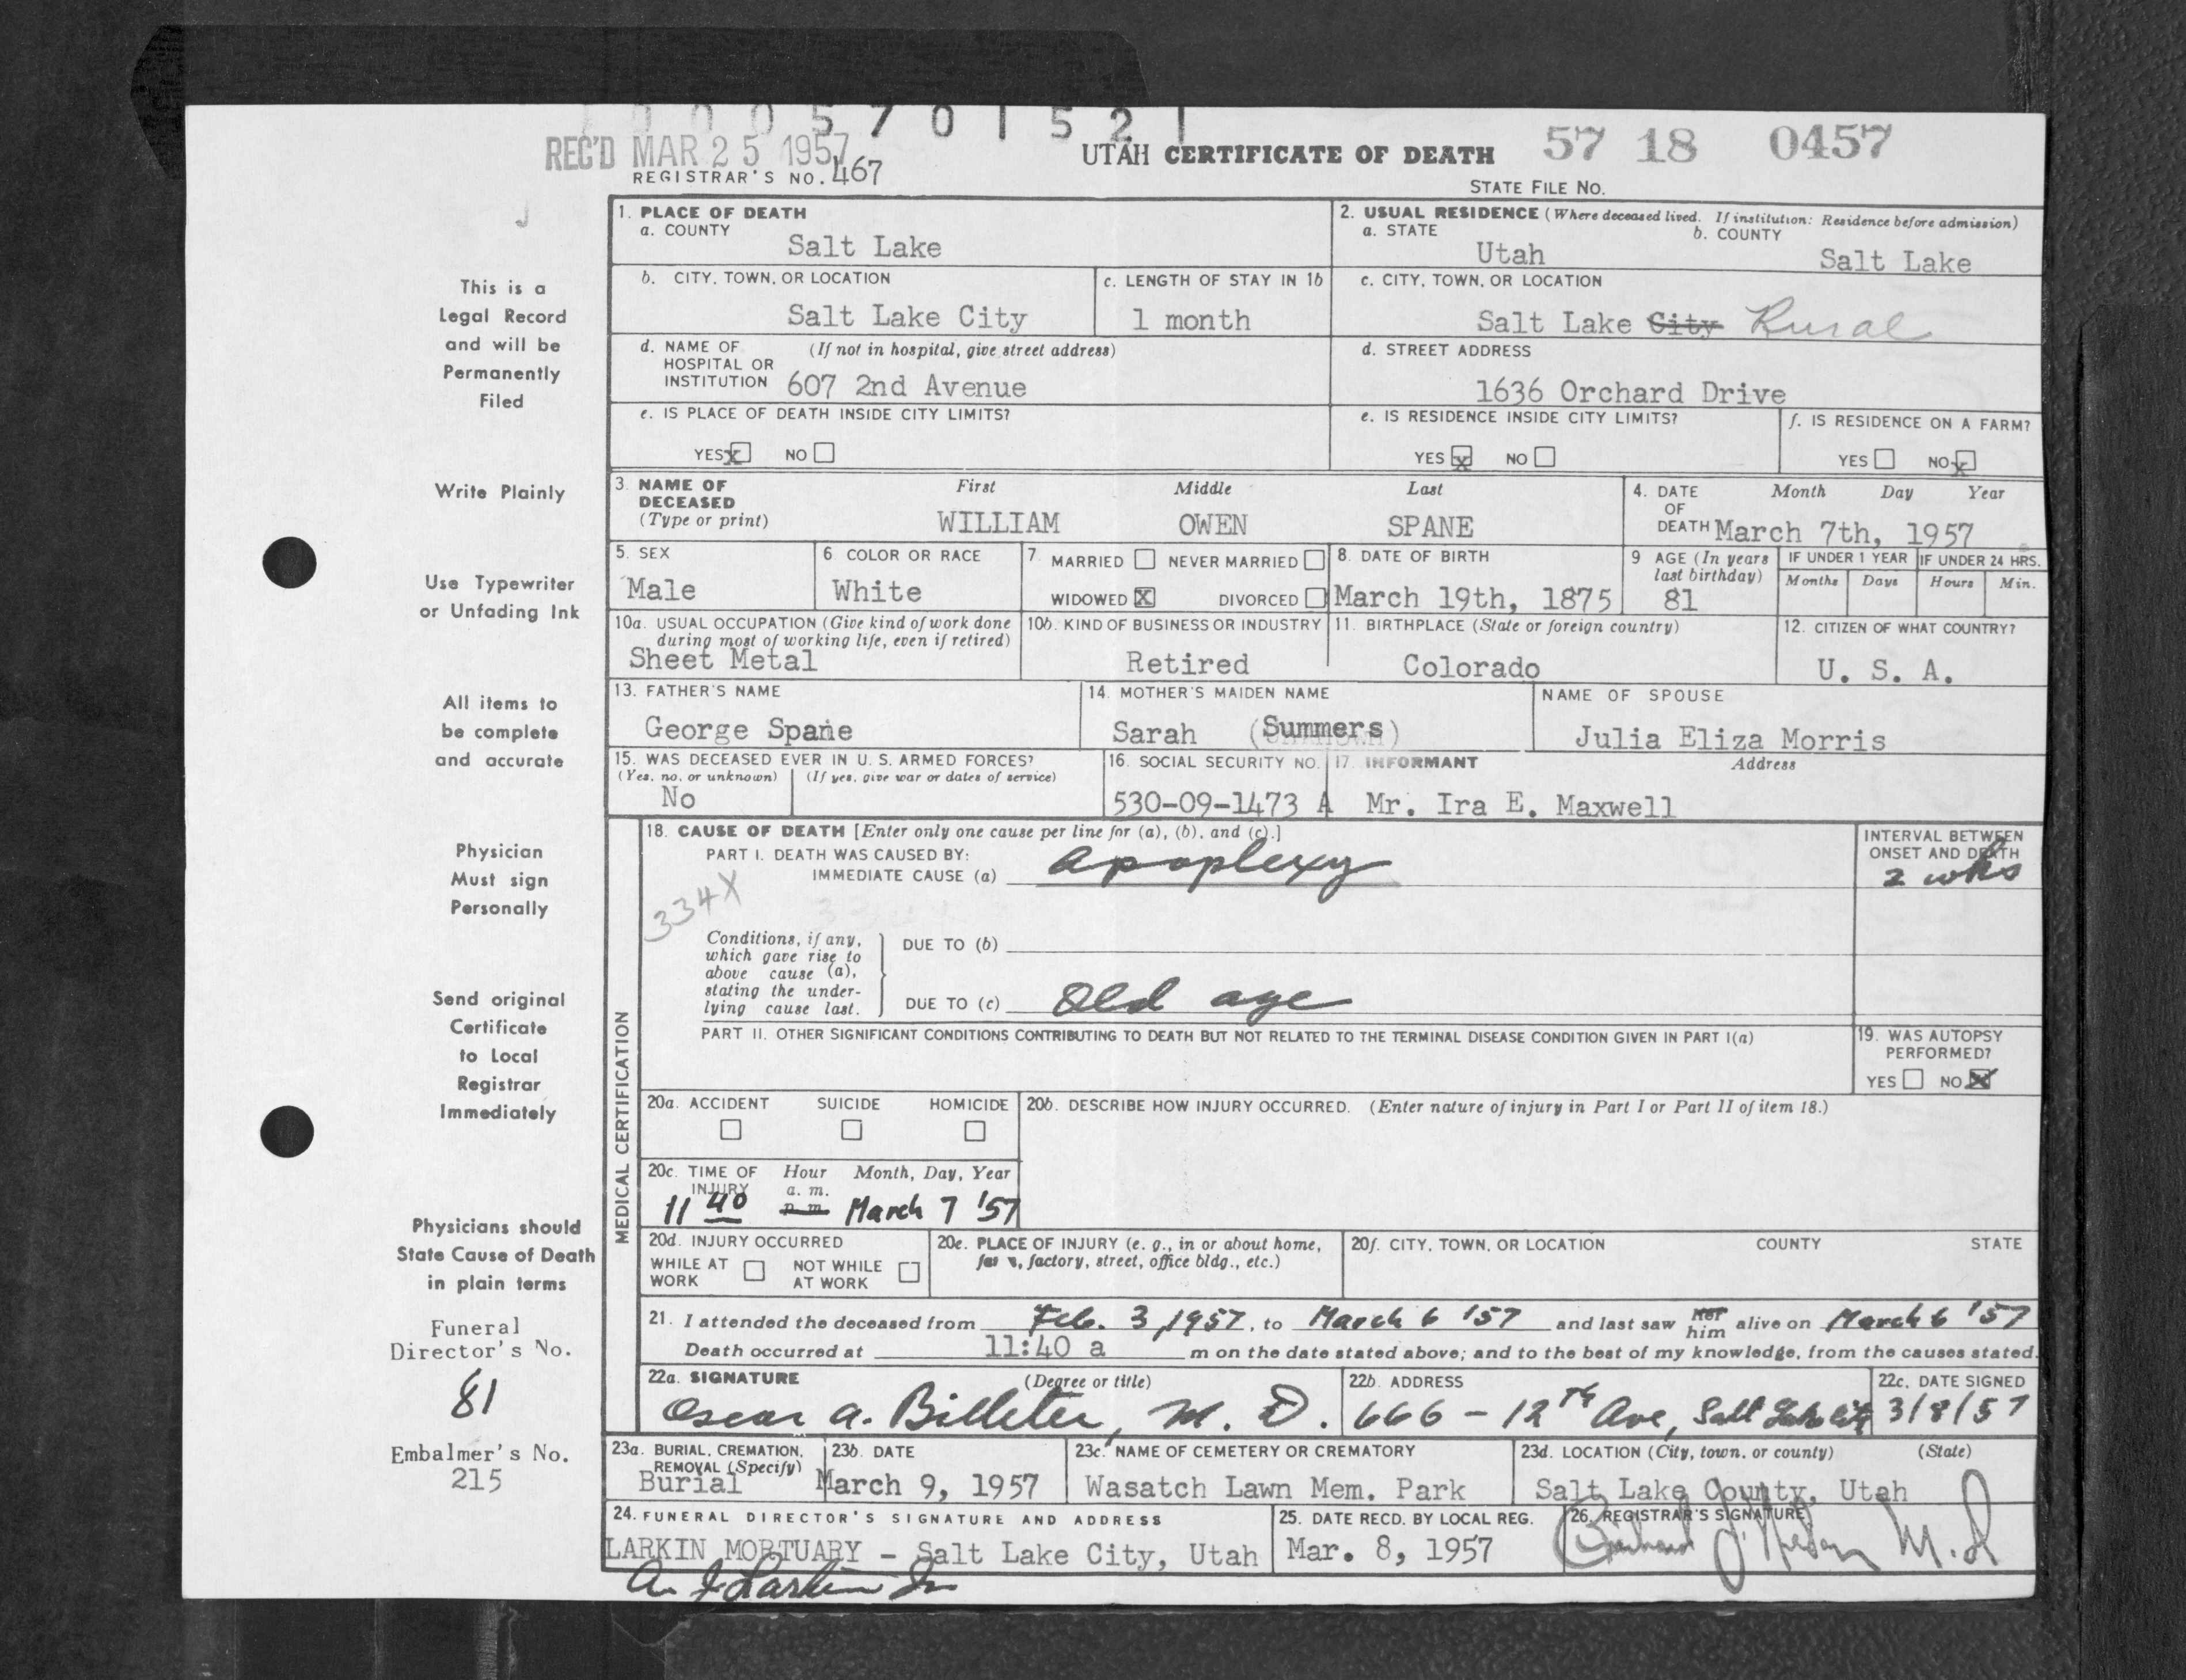 1 0 0 0 5 7 0 1 5 2 1
REC'D MAR 25 1957
REGISTRAR'S NO. 467
UTAH CERTIFICATE OF DEATH
57 18 0457
STATE FILE NO.
This is a
Legal Record
and will be
Permanently
Filed
Write Plainly
Use Typewriter
or Unfading Ink
All items to
be complete
and accurate
Physician
Must sign
Personally
Send original
Certificate
to Local
Registrar
Immediately
Physicians should
State Cause of Death
in plain terms
Funeral
Director's No.
81
Embalmer's No.
215
1. PLACE OF DEATH
a. COUNTY
Salt Lake
2. USUAL RESIDENCE (Where deceased lived. If institution: Residence before admission)
a. STATE
Utah
b. COUNTY
Salt Lake
b. CITY, TOWN, OR LOCATION
Salt Lake City
c. LENGTH OF STAY IN 1b
1 month
c. CITY, TOWN, OR LOCATION
Salt Lake City Rural
d. NAME OF (If not in hospital, give street address)
HOSPITAL OR
INSTITUTION 607 2nd Avenue
d. STREET ADDRESS
1636 Orchard Drive
e. IS PLACE OF DEATH INSIDE CITY LIMITS?
YES X NO
e. IS RESIDENCE INSIDE CITY LIMITS?
YES X NO
f. IS RESIDENCE ON A FARM?
YES NO X
3. NAME OF
DECEASED
(Type or print)
First Middle Last
WILLIAM OWEN SPANE
4. DATE Month Day Year
OF
DEATH March 7th, 1957
5. SEX
Male
6 COLOR OR RACE
White
7. MARRIED NEVER MARRIED
WIDOWED X DIVORCED
8. DATE OF BIRTH
March 19th, 1875
9 AGE (In years
last birthday)
81
IF UNDER 1 YEAR IF UNDER 24 HRS.
Months Days Hours Min.
10a. USUAL OCCUPATION (Give kind of work done
during most of working life, even if retired)
Sheet Metal
10b. KIND OF BUSINESS OR INDUSTRY
Retired
11. BIRTHPLACE (State or foreign country)
Colorado
12. CITIZEN OF WHAT COUNTRY?
U. S. A.
13. FATHER'S NAME
George Spane
14. MOTHER'S MAIDEN NAME
Sarah (Summers)
NAME OF SPOUSE
Julia Eliza Morris
15. WAS DECEASED EVER IN U. S. ARMED FORCES?
(Yes, no, or unknown) (If yes, give war or dates of service)
No
16. SOCIAL SECURITY NO.
530-09-1473 A
17. INFORMANT Address
Mr. Ira E. Maxwell
MEDICAL CERTIFICATION
18. CAUSE OF DEATH [Enter only one cause per line for (a), (b), and (c).]
PART I. DEATH WAS CAUSED BY:
IMMEDIATE CAUSE (a) apoplexy
INTERVAL BETWEEN
ONSET AND DEATH
2 wks
334X
Conditions, if any,
which gave rise to
above cause (a),
stating the under-
lying cause last.
DUE TO (b)
DUE TO (c) Old age
PART II. OTHER SIGNIFICANT CONDITIONS CONTRIBUTING TO DEATH BUT NOT RELATED TO THE TERMINAL DISEASE CONDITION GIVEN IN PART I(a)
19. WAS AUTOPSY
PERFORMED?
YES NO X
20a. ACCIDENT SUICIDE HOMICIDE
20b. DESCRIBE HOW INJURY OCCURRED. (Enter nature of injury in Part I or Part II of item 18.)
20c. TIME OF Hour Month, Day, Year
INJURY a. m.
11 40 p. m. March 7 '57
20d. INJURY OCCURRED
WHILE AT NOT WHILE
WORK AT WORK
20e. PLACE OF INJURY (e. g., in or about home,
farm, factory, street, office bldg., etc.)
20f. CITY, TOWN, OR LOCATION COUNTY STATE
21. I attended the deceased from Feb. 3, 1957, to March 6 '57 and last saw her him alive on March 6 '57
Death occurred at 11:40 a m on the date stated above; and to the best of my knowledge, from the causes stated.
22a. SIGNATURE (Degree or title)
Oscar A. Billeter, M. D.
22b. ADDRESS
666 - 12th Ave, Salt Lake City
22c. DATE SIGNED
3/8/57
23a. BURIAL, CREMATION,
REMOVAL (Specify)
Burial
23b. DATE
March 9, 1957
23c. NAME OF CEMETERY OR CREMATORY
Wasatch Lawn Mem. Park
23d. LOCATION (City, town, or county) (State)
Salt Lake County, Utah
24. FUNERAL DIRECTOR'S SIGNATURE AND ADDRESS
LARKIN MORTUARY - Salt Lake City, Utah
A. J. Larkin Jr
25. DATE RECD. BY LOCAL REG.
Mar. 8, 1957
26. REGISTRAR'S SIGNATURE
M.D